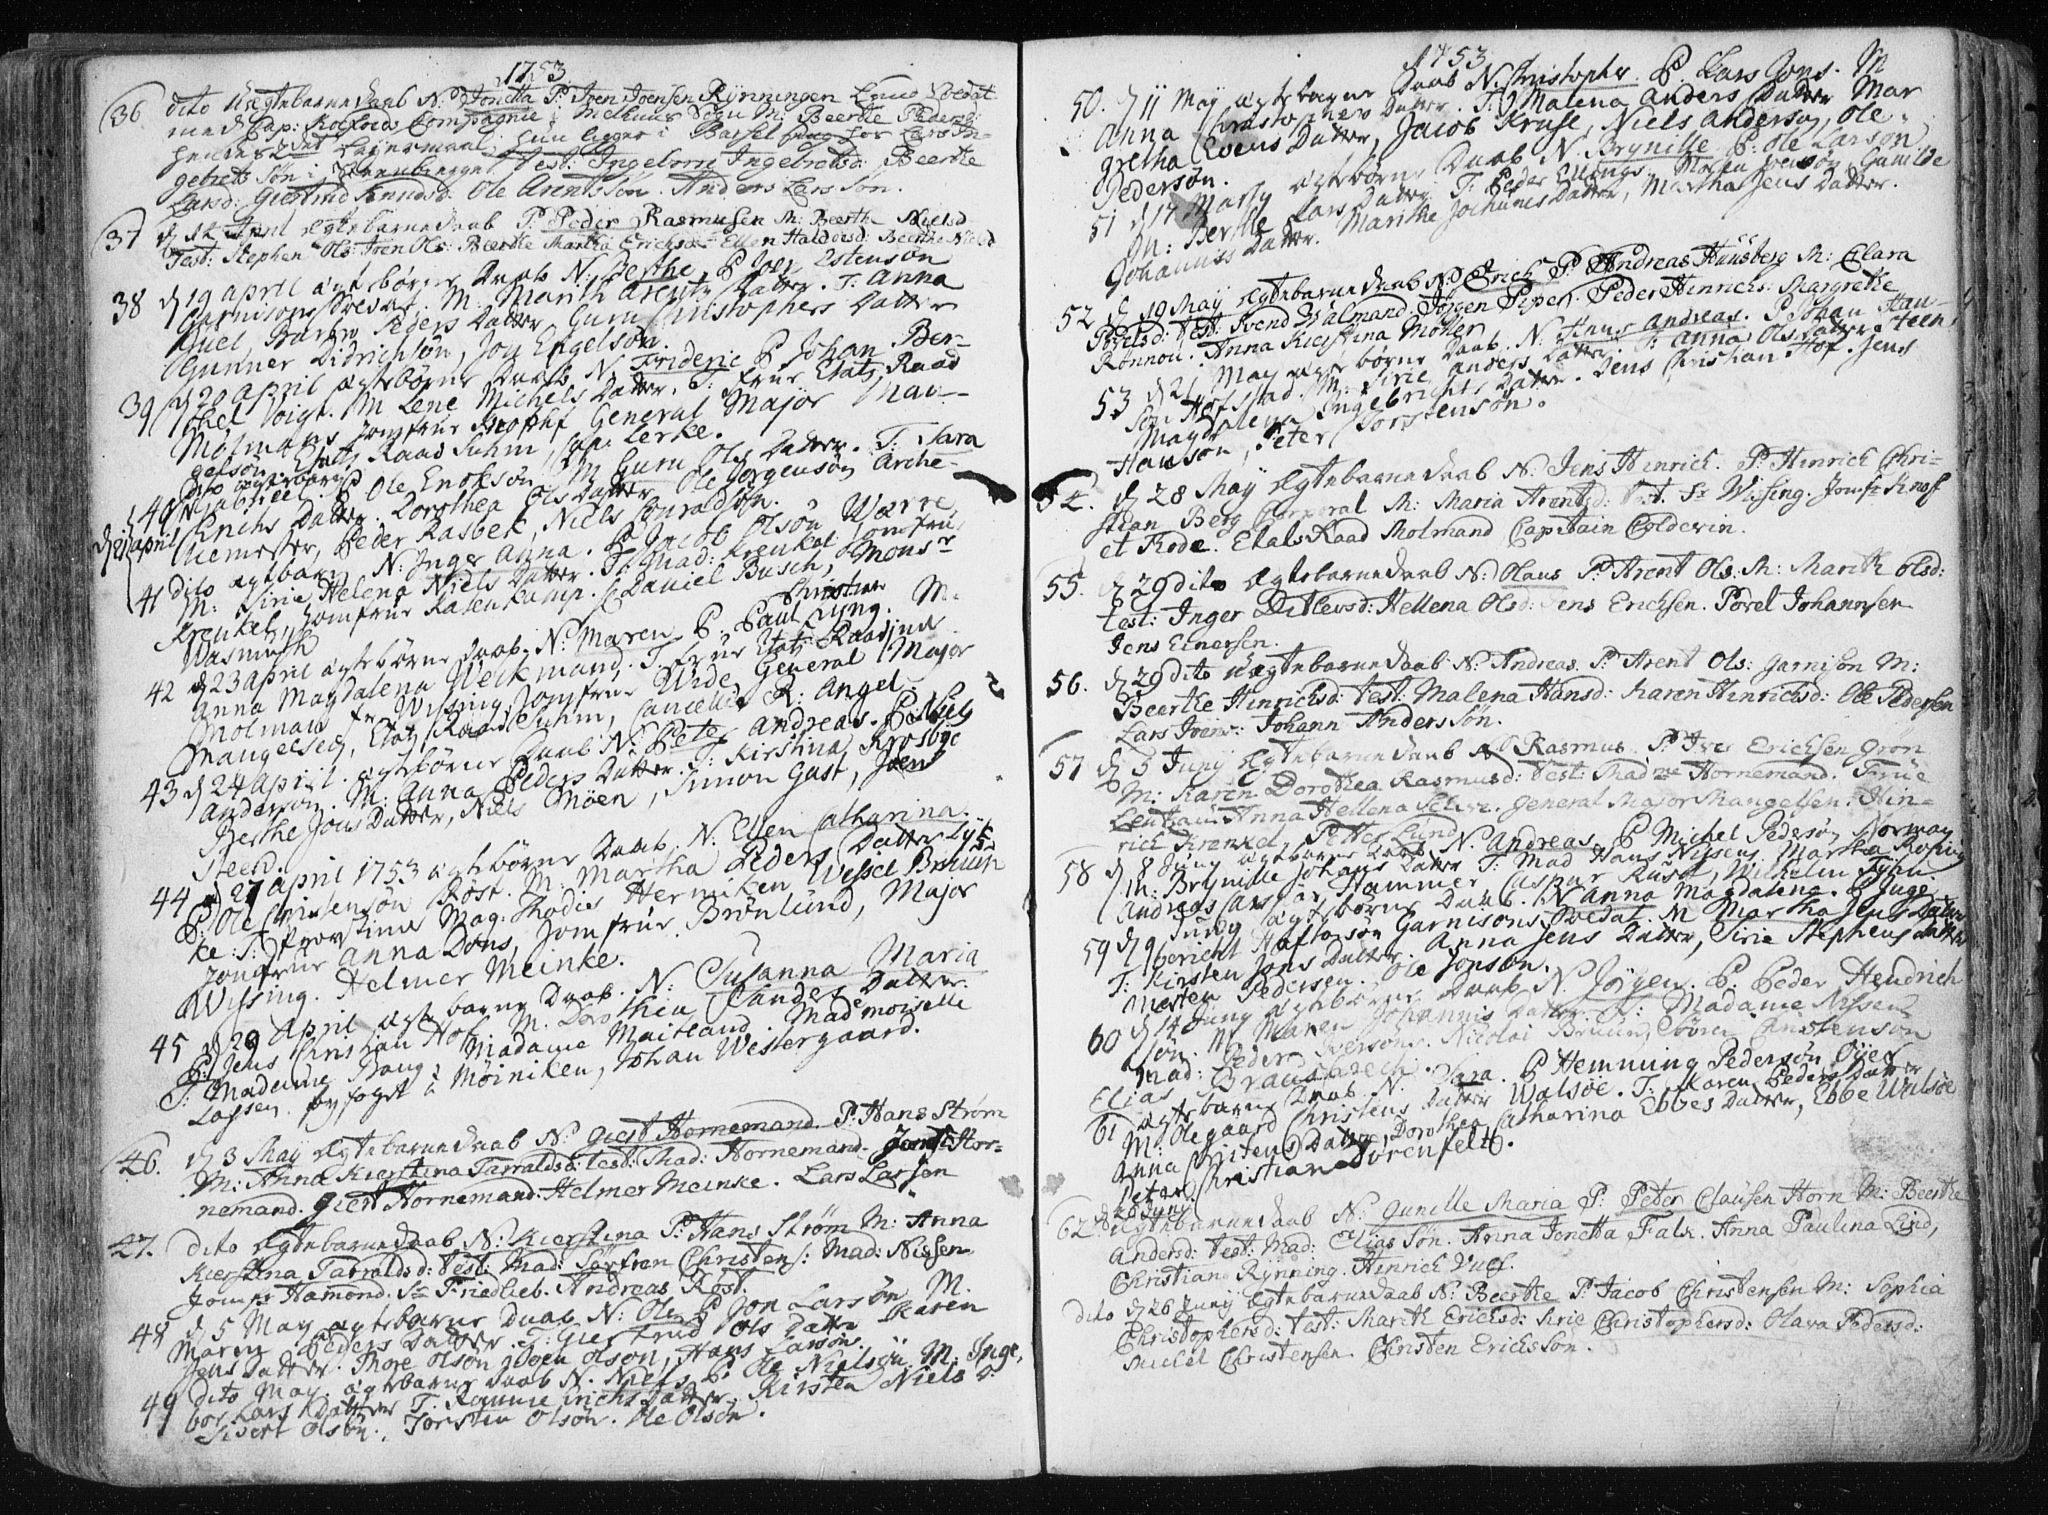 1753
36 dito Uægtebarnedaab N: Jonetta P: Joen Joensen Rynningen Land Soldat
med Cap: Rosfoeds Compagnie i Melhuus Sogn M: Beerthe Peders:
hendes 2det Leyermaal, hun ligger i Barsel Seng hos Lars In-
gebrets Søn i Steenberget. Test: Ingeborg Ingebretsd: Beerthe
Larsd: Giertrud Knudsd: Ole Arentssøn. Anders Lars Søn.
37 d 12 April Ægtebarnedaab P: Peder Rasmusen M: Beerthe Nielsd
Test: Stephen Ols: Iven Ols: Beerthe Martha Erichsd: Ellen Haldorsd: Beerthe Nielsd
38 d 19 april ægtebørne Daab N: Berthe P Joen Estensøn
Garnisons Soldat. M. Marith Arentz Datter. T: Anna
Juel, Baren Peders Datter Guru Christophers Datter
Gunner Didrichsøn, Joy Engelsøn.
39 d 20 april ægtebørne Daab N. Frideric P Johan Ber-
thel Voigt. M Lene Michels Datter. T. frue Etatz Raad
Molmans Jomfrue Kropf General Major Man-
gelsen. Etatz Raad Suhm, Cap. Lerke.
40 dito ægtebarn
N: Gabriel. P Ole Enokson M Guru Ols Datter. T: Sara
d 21 april Erichs Datter. Dorothea Ols Datter Ole Jørgensøn Arche-
liemester, Peder Rasbek, Niels Conradsøn.
41 dito ægtebarn N: Inger Anna. P Jacob Olsøn Wærre,
M: Sirie Helena Niels Datter. T: Mad: Krenkel Jomfrue
Krenkel, Jomfrue Rasenkamp. C Daniel Busch, Monsr
Wasmuth
42 d 23 april ægtebørne daab. N: Maren Christine P. Paul Lyng. M.
Anna Magdalena Weikmand. T frue Etatz Raadinde
Molman fr Wissing Jomfrue Wide, General Major
Mangelsen, Etatz Raad Suhm, Cancellie R. Angel
43 d 24 april. ægtebørne Daab N: Peter Andreas. P Niels
Anderson. M: Anna Peders Datter. T: Kirstina Krosbye
Berthe Jons Datter, Niels Möen, Simon Gast, Joen
Steen.
44 d 27 april 1753 ægtebørne Daab. N: Ellen Catharina.
P: Ole Christensøn Røst. M. Martha Peders Datter Lys-
ke: T: Provstinde Mag: Thodies Hermiken Wessel Bruun
Jomfrue Anna Dons, Jomfrue Brønlund, Major
Wissing. Helmer Meinke.
45 d 29 April ægtebarne Daab. N: Susanna Maria
P: Jens Christian Hof. M. Dorothea Sanders Datter.
T: Madame Bang, Madame Maitland. Mademoiselle
Lassen. Byfoget Møiniken, Johan Westergaard.
46. d 3 May Ægtebarnedaab N: Giert Hornemand P: Hans Strøm
M: Anna Kierstina Tarraldsd: test: Mad: Hornemand. Jomf: Hor-
nemand. Giert Hornemand. Helmer Meinke. Lars Larsen
47. dito Ægtebarnedaab N: Kierstina P: Hans Strøm M: Anna
Kierstina Tarraldsd: test: Mad: Sørfren Christens: Mad: Niesen
Jomfr Hamond. Sr Friedlieb. Andreas Röst.
48 d 5 May ægtebarne Daab N: Ole P Jon Larsøn M.
Maren Peders Datter. T: Giertrud Ols Datter Karen
Jens Datter. Thore Olson Joen Olson, Hans Larsøn.
49 dito May ægtebarne Daab N. Niels P. Ole Nielsøn M: Inge,
bor Lars Datter T. Ranme Erichs Datter. Kirsten Niels D:
Sivert Olsøn. Torsten Olsøn. Ole Olsøn.
1753
50. d 11 May ægtebarne Daab N. Christopher P. Lars Jons. M
Anna Christophers Datter. T: Malena Anders Datter Mar
gretha Evens Datter, Jacob Kruse, Niels Andersøn, Ole
Pedersøn.
51 d 17 Mai ægtebørne Daab N. Brynille P. Ole Larson
M: Berthe Lars Datter. T: Peder Ellings. Morten Jensøn Gunilde
Johannis Datter. Marithe Johannis Datter, Martha Jens Datter.
52 d 19 May Ægtebarnedaab N: Erich P: Andreas Huusberg M: Clara
Povelsd: test: Svend Walmand. Jørgen Piper. Peder Hinrichs. Margrethe
Rønnou. Anna Kierstina Møller
53 d 21 May ægtebørne Daab. N. Hans Andreas. P: Johan Han-
son Hofstad. M: Sirie Anders Datter. T: Anna Ols Datter Steen,
Magdalena Ingebrichts Datter. Jens Christian Hof. Jens
Hanson, Peter Torstensøn.
54. d 28 May Ægtebarnedaab N: Jens Hinrich. P: Hinrich Chri-
stian Berg Corporal M: Maria Arentsd: test. Fr Wissing. Jomfr Knof
et Rode. Etats Raad Molmand Capitain Colderin.
55. d 29 dito Ægtebarnedaab N: Olaus P: Arent Ols: M: Marith Olsd:
test: Inger Ditlevsd: Hellena Olsd: Jens Erichsen. Povel Johannsen
Jens Einersen.
56. d 29 dito Uægtebarnedaab N: Andreas P: Arent Ols: Garnison M:
Beerthe Hinrichsd: test: Malena Hansd: Karen Hinrichsd: Ole Pedersen
Lars Ivers: Johann Anderssøn.
57 d 5 Juny Ægtebarnedaab N: Rasmus. P: Iver Erichsen Grøn
M: Karen Dorothea Rasmusd: test: Madme Hornemand. Frue
Leutian: Anna Hellena Schive. General Major Mangelsen. Hin-
rich Krenkel, Petter Lund
58 d 8 Juny ægtebarne Daab N. Andreas P Michel Pedersøn Normay
M: Brynille Johans Datter T: Mad Hans Nissen, Martha Koning
Andreas Hammer, Caspar Rust, Wilhelm Tyhn.
59 d 9 Juny ægtebørne Daab. N Anna Magdalena. P Inge
bericht Haftorson Garnisons Soldat. M Martha Jens Datter
T: Kirsten Jons Datter. Anna Jens Datter, Sirie Stephens Datter
Morten Pedersen. Ole Jonson.
60 d 14 Juny ægtebørne Daab N. Jørgen. P: Peder Hendrich
søn. M: Maren Johannis Datter. T: Madame Nissen
Mad: Peder Iversøns. Nicolai Bruun, Søören Christensøn
Elias Brausbrech.
61 ægtebarne Daab N. Sara. P Hemming Pedersøn Øyer
M: Olegaard Christens Datter Walsøe. T: Karen Peders Datter
Anna Christens Datter, Dorothea Catharina Ebbes Datter, Ebbe Walsøe
Peter Christian Dorenfelt.
d 26 Juny
62. Ægtebarnedaab N: Gunille Maria P: Peter Clausen Horn M: Beerthe
Andersd: test: Mad: Eliassøn. Anna Jonetta Falk. Anna Paulina Lind,
Christian Rynning. Hinrich Vulf.
dito d 26 Juny Ægtebarnedaab N: Beerthe P: Jacob Christensen M: Sophia
Christophersd: test: Marith Erichsd: Sirie Christophersd: Olava Pedersd:
Michel Christensen. Christen Erichsøn.